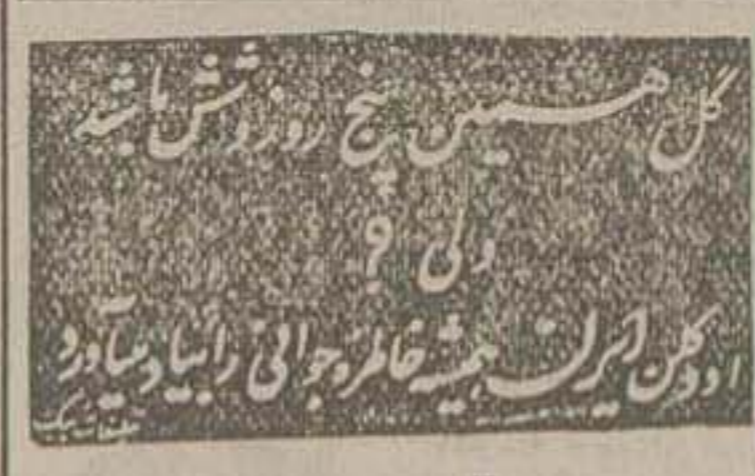 گل همین پنج روز و شش باشد
ولی ؟
اودکلن ایران همیشه خاطره جوانی را بیاد میآورد